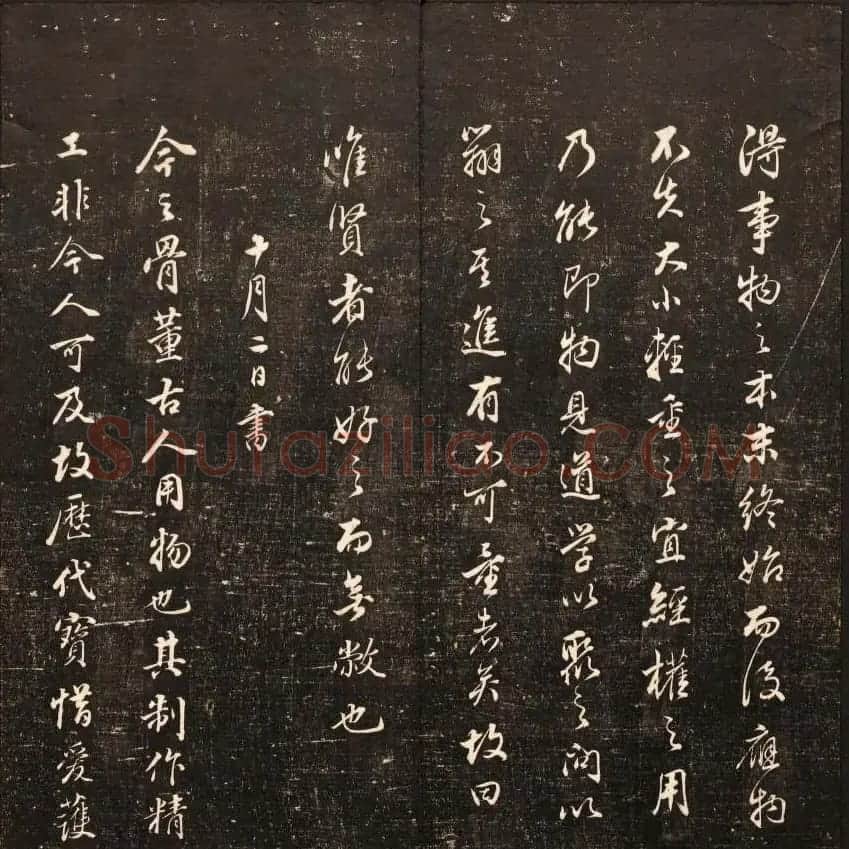 得事物之本末終始而後應物
不失大小輕重之宜經權之用
乃能即物見道学以聚之問以
辯之其進有不可量者矣故曰
唯賢者能好之而無敝也
十月二日書
今之骨董古人用物也其制作精
工非今人可及故歷代寶惜愛護
Shufaziliao.COM